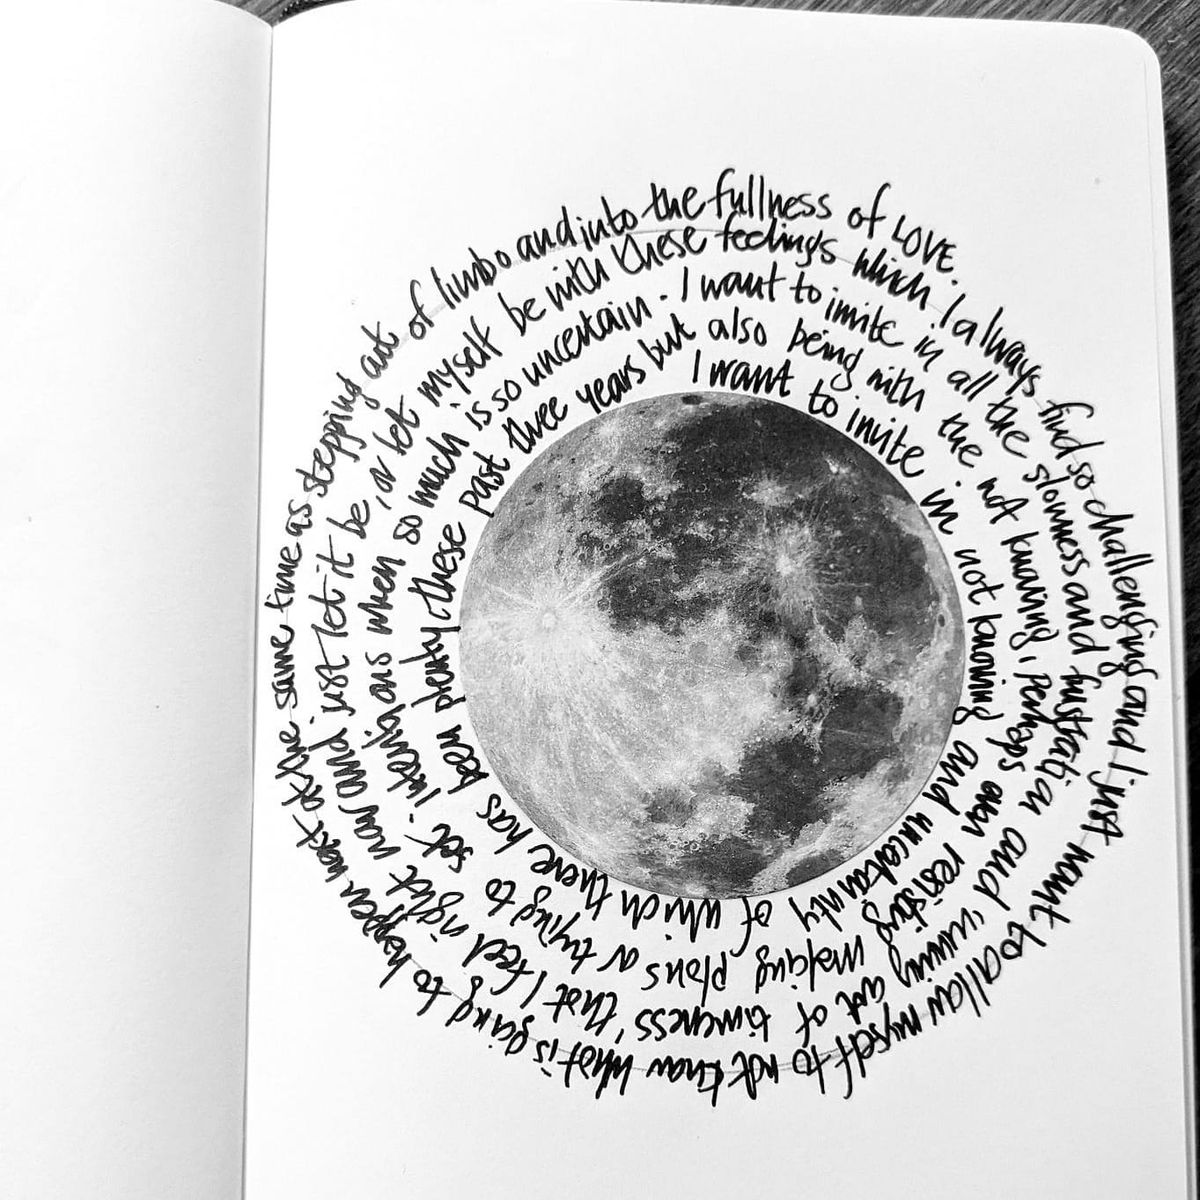 I want to invite in not knowing and uncertainty of which there has been plenty, these past three years but
also being with the not knowing, perhaps even resisting making plans or trying to set intentions when so much is so uncertain.
I want to invite in all the slowness and frustration and running out of 'timeness' that I feel right now and just let it be, or let myself be with these
feelings which I always find so challenging and I just want to allow myself to not know what is going to happen next at the same time as stepping out of limbo and into the fullness of LOVE.